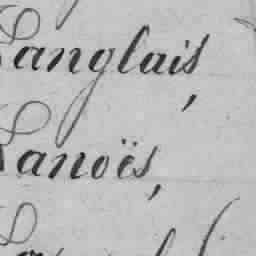 Langlais,
Lanoës,